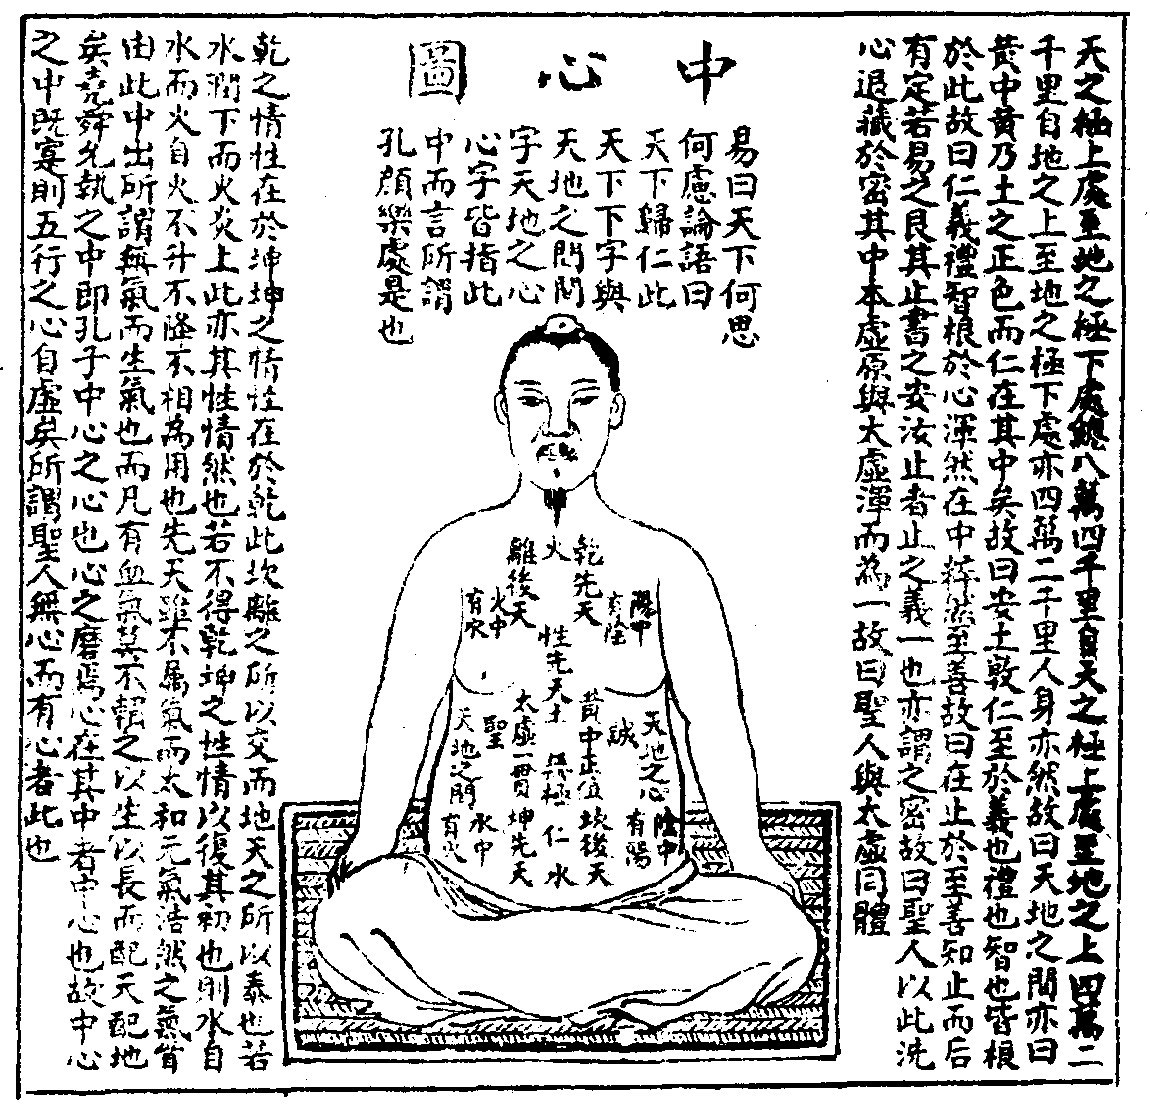 中心圖
天之極上處至地之極下處總八萬四千里自天之極上處至地之上四萬二
千里自地之上至地之極下處亦四萬二千里人身亦然故曰天地之間亦曰
黃中黃乃土之正色而仁在其中矣故曰安土敦仁至於義也禮也智也皆根
於此故曰仁義禮智根於心渾然在中粹然至善故曰在止於至善知止而后
有定若易之艮其止書之安汝止者止之義一也亦謂之密故曰聖人以此洗
心退藏於密其中本虛原與太虛渾而為一故曰聖人與太虛同體
易曰天下何思
何慮論語曰
天下歸仁此
天下下字與
天地之間間
字天地之心
心字皆指此
中而言所謂
孔顏樂處是也
陽中
有陰
乾先天
火
離後天
火中
有水
性先天土
天地之心
誠
黃中正位
極
太虛一貫
聖
天地之間
陰中
有陽
坎後天
仁
水
坤先天
水中
有火
乾之情性在於坤坤之情性在於乾此坎離之所以交而地天之所以泰也若
水潤下而火炎上此亦其性情然也若不得乾坤之性情以復其初也則水自
水而火自火不升不降不相為用也先天雖不屬氣而太和元氣浩然之氣皆
由此中出所謂無氣而生氣也而凡有血氣莫不賴之以生以長而配天配地
矣堯舜允執之中即孔子中心之心也心之磨焉心在其中者中心也故中心
之中既寔則五行之心自虛矣所謂聖人無心而有心者此也